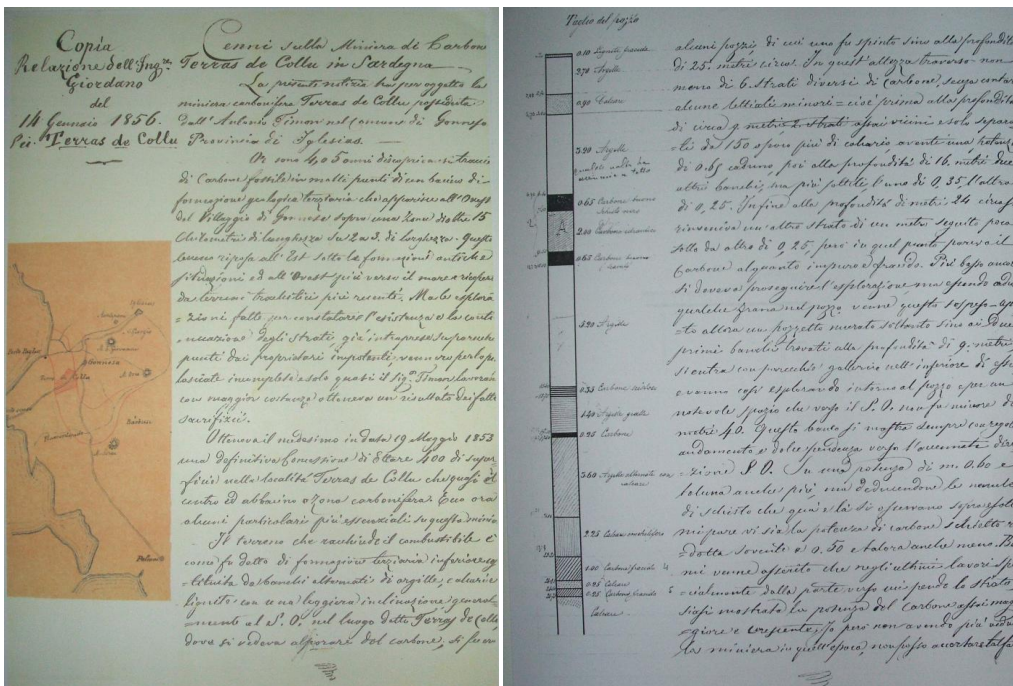 Copia
Relazione dell'Ing.re
Giordano
del
14 Gennaio 1856.
Terras de Collu
Cenni sulla Miniera di Carbone
Terras de Collu in Sardegna
La presente notizia ha per oggetto la
miniera carbonifera Terras de Collu posseduta
dall' Antonio Timon nel comune di Gonnesa
Provincia di Iglesias.
Or sono 4 o 5 anni si tracci
di Carbone fossile in molti punti di un bacino di
formazione geologica terziaria che apparisce all' Ovest
del Villaggio di Gonnesa sopra una zona di oltre 15
Chilometri di lunghezza su 2 a 3 di larghezza. Questo
bacino riposa all' Est sotto le formazioni antiche
ed all' Ovest più verso il mare
da terreni trachitici più recenti. Ma le esplora
=zioni fatte per constatare l'esistenza e la conti
=nuazione degli strati, già intraprese su parecchi
punti dai proprietarj impotenti vennero per lo più
lasciate incomplete e solo quasi il Sig.r Timon lavorando
con maggior costanza otteneva un risultato de' fatti
sacrifizii.
Otteneva il medesimo in data 19 Maggio 1853
una definitiva Concessione di Ettare 400 di super
ficie nella località Terras de Collu che quasi è il
centro del bacino o zona carbonifera. Ecco ora
alcuni particolari più essenziali su questa miniera
Il terreno che racchiude il combustibile è
come fu detto di formazione terziaria inferiore cos
=tituita da banchi alternati di argille, calcari e
ligniti con una leggiera inclinazione general
=mente al S. O. nel luogo detto Terras de Collu
dove si vedeva affiorare del carbone, si fecero
Gonnesa
Terras de Collu
Taglio del pozzo
0.10 Lignite fracida
3.70 Argilla
0.90 Calcare
3.20 Argilla
0.65 Carbone buono
A
2.00
0.65 Carbone buono
5.20 Argilla
0.35 Carbone
1.40 Argilla
0.25 Carbone
3.60 Argilla alternata con
calcare
2.25 Calcare
0.80 Carbone fracido
0.95 Calcare
0.25 Carbone fracido
Calcare
alcuni pozzi di cui uno fu spinto sino alla profondità
di 25. metri circa. In quest' altezza traversò non
meno di 6. strati diversi di Carbone, senza contare
alcune letticelli minori = cioè prima alla profondità
di circa 9. metri 2. strati assai vicini e solo separa
=ti da 1.50 di calcario avente una potenza
di 0.65 caduno, poi alla profondità di 16. metri due
altri banchi, ma più sottili, l'uno di 0,35, l'altro
di 0,25. Infine alla profondità di metri 24 circa si
rinveniva un altro strato di un metro seguito poco
sotto da altro di 0,25, però in quel punto pareva il
Carbone alquanto impuro e fracido. Più basso ancora
si doveva proseguire l'esplorazione ma essendo avvenuta
qualche frana nel pozzo venne questo sospeso
=to allora un pozzetto murato soltanto sino ai due
primi banchi trovati alla profondità di 9. metri
si entrò con parecchie gallerie nell' inferiore di essi
e venne così esplorando intorno al pozzo e per un
notevole spazio che verso il S. O. non fu minore di
metri 40. Questo banco si mostrò sempre con regolare
andamento e dolce pendenza verso l'accennata dire
=zione S O. In una potenza di m. 0.60 e
taluna anche più, ma deducendone le venule
di schisto che qua e là si osservano sopra e sotto
mi pare vi sia la potenza di carbone schietto ri
=dotta sovente a 0.50 e talora anche meno. Poi
mi venne asserito che negli ultimi lavori spe
=cialmente dalla parte verso cui pende lo strato
siasi mostrata la potenza del Carbone assai mag
=giore e crescente, Io però non avendo più veduto
la miniera in quell' epoca, non posso accertare tal fatto